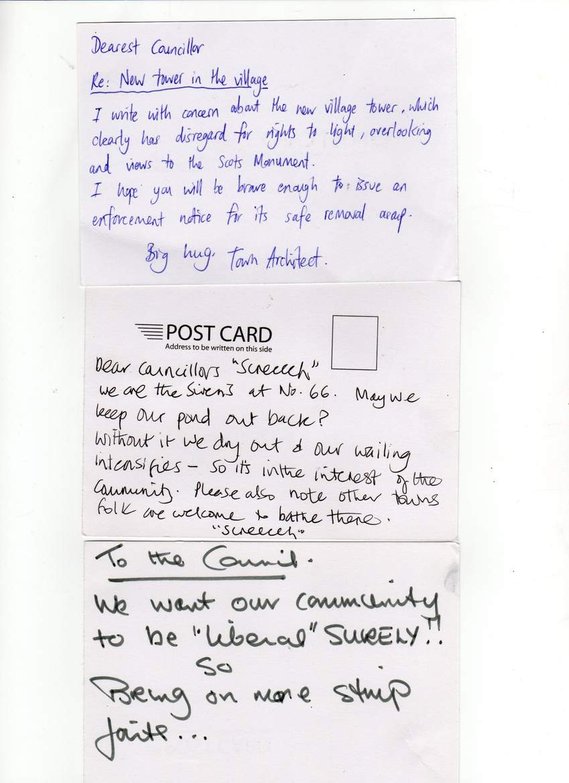 Dearest Councillor
Re: New tower in the village
I write with concern about the new village tower, which
clearly has disregard for rights to light, overlooking
and views to the Scots Monument.
I hope you will be brave enough to: issue an
enforcement notice for its safe removal asap.
Big hug. Town Architect.
POST CARD
Address to be written on this side
Dear Councillors "Screeech"
we are the Sirens at No. 66. May we
keep our pond out back?
Without it we dry out & our wailing
intensifies – so it's in the interest of the
Community. Please also note other towns
folk are welcome to bathe there.
"screeech"
To the Council.
We want our community
to be "liberal" SURELY!!
So
Bring on more strip
joints...